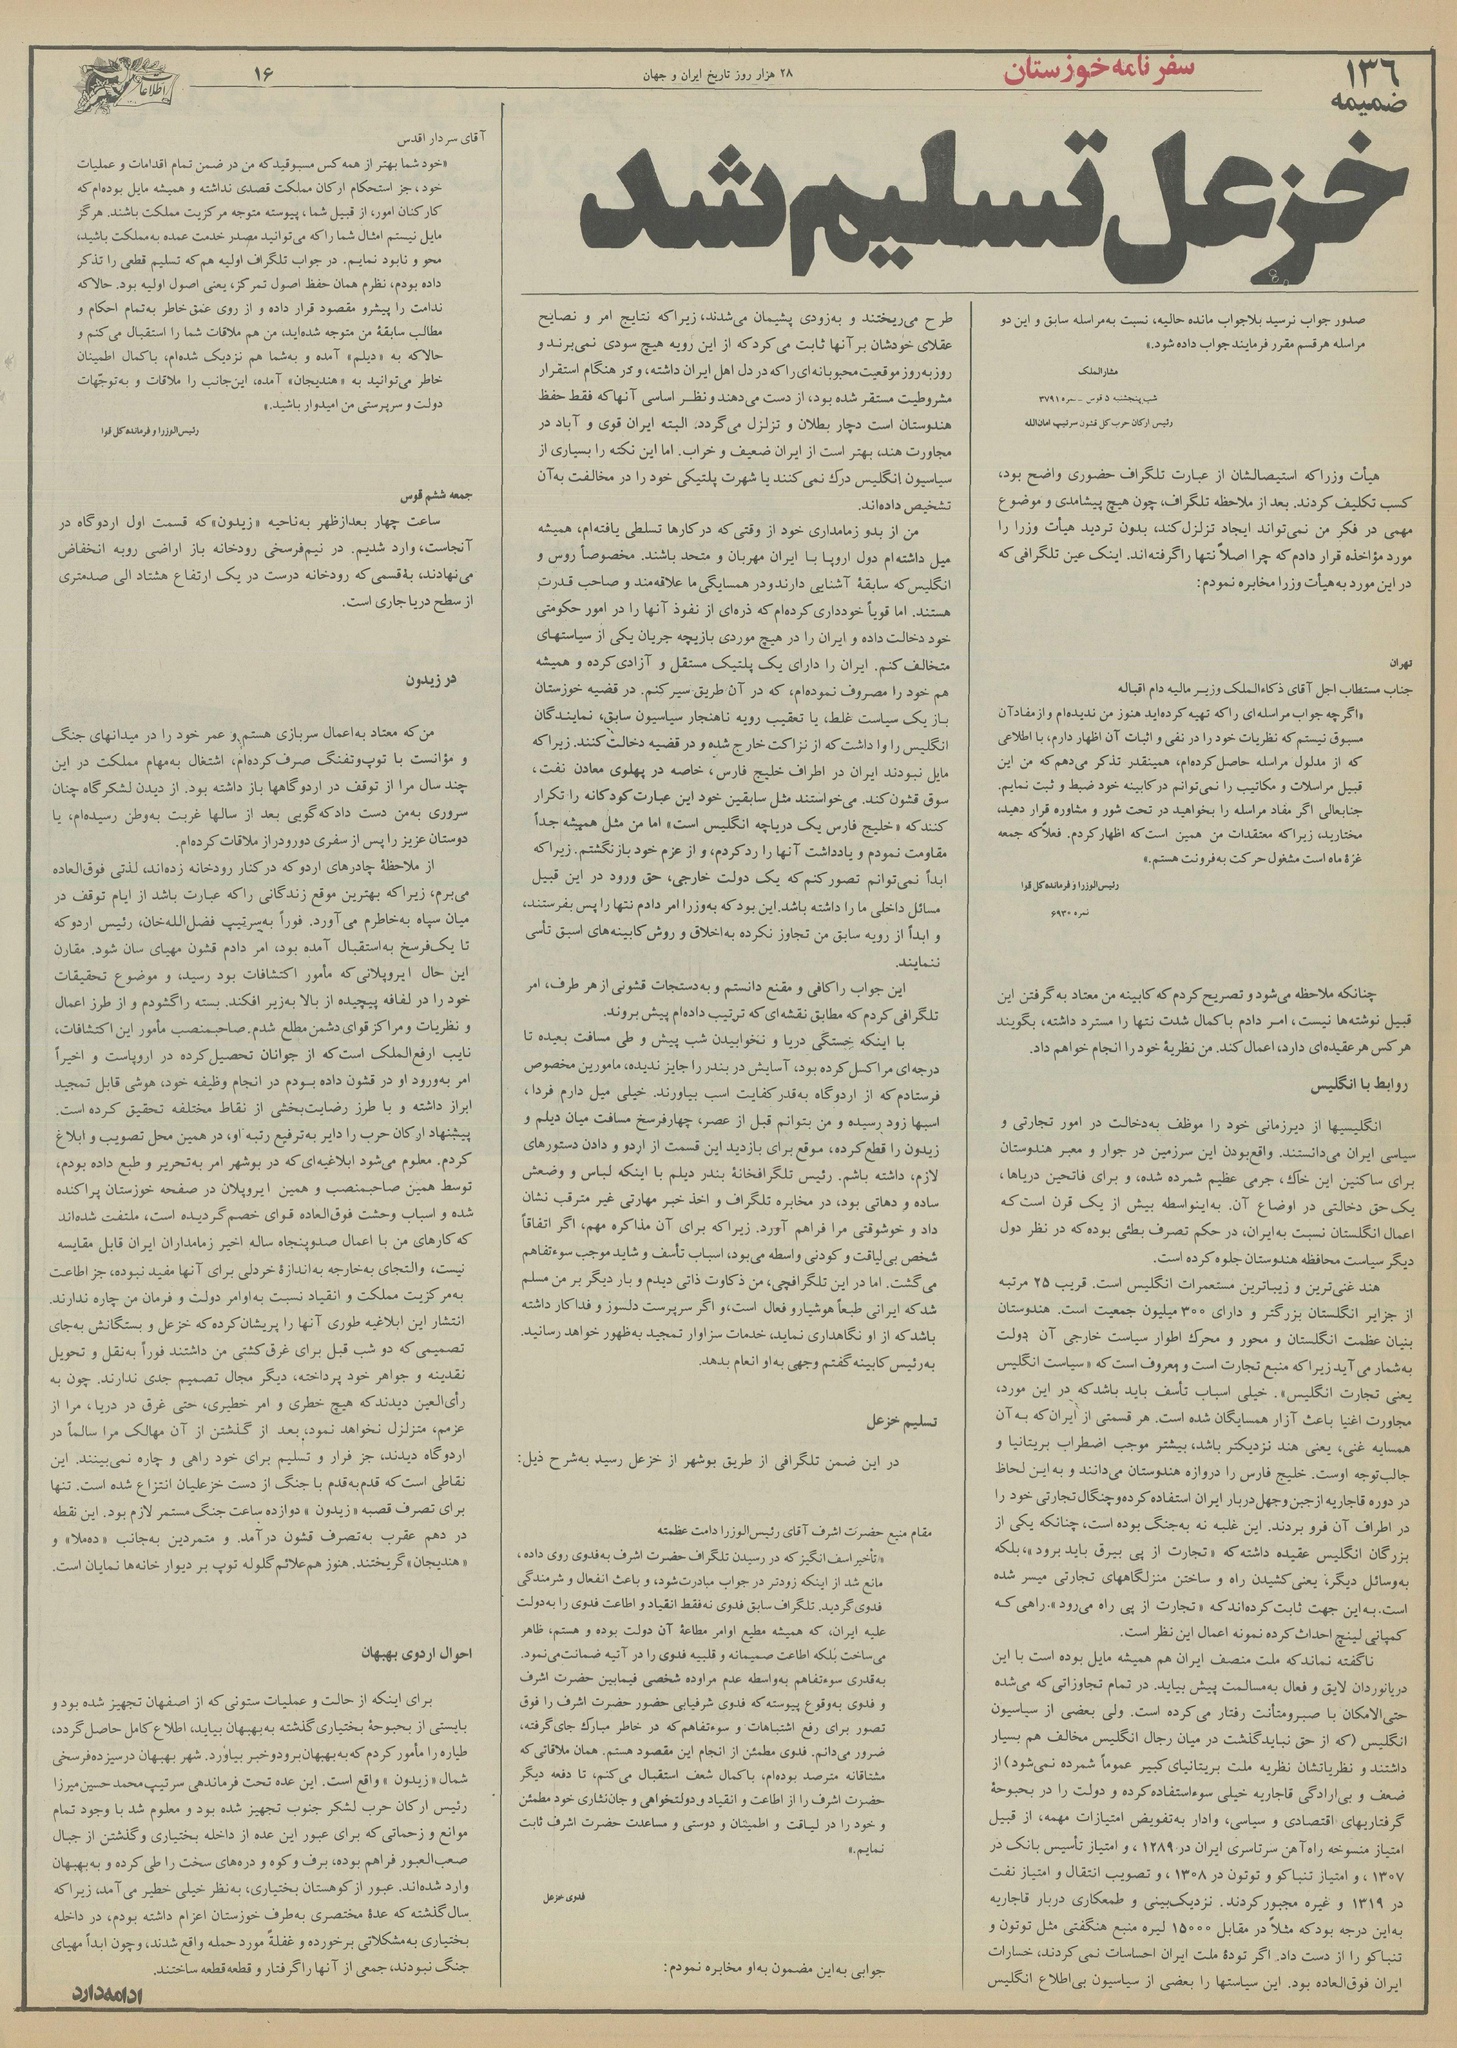 ۱۳۶
ضمیمه
سفرنامه خوزستان
۲۸ هزار روز تاریخ ایران و جهان
۱۶
اطلاعات
خزعل تسلیم شد
صدور جواب نرسید بلاجواب مانده حالیه، نسبت به‌مراسله سابق و این دو
مراسله هرقسم مقرر فرمایند جواب داده شود.»
مشارالملک
شب پنجشنبه ۵ قوس – نمره ۳۷۹۱
رئیس ارکان حرب کل قشون سرتیپ امان‌الله
هیأت وزراکه استیصالشان از عبارت تلگراف حضوری واضح بود،
کسب تکلیف کردند. بعد از ملاحظه تلگراف، چون هیچ پیشامدی و موضوع
مهمی در فکر من نمی‌تواند ایجاد تزلزل کند، بدون تردید هیأت وزرا را
مورد مؤاخذه قرار دادم که چرا اصلاً نتها را گرفته‌اند. اینک عین تلگرافی که
در این مورد به‌هیأت وزرا مخابره نمودم:
تهران
جناب مستطاب اجل آقای ذکاءالملک وزیر مالیه دام اقباله
«اگرچه جواب مراسله‌ای راکه تهیه کرده‌اید هنوز من ندیده‌ام و از مفاد آن
مسبوق نیستم که نظریات خود را در نفی و اثبات آن اظهار دارم، با اطلاعی
که از مدلول مراسله حاصل کرده‌ام، همینقدر تذکر می‌دهم که من این
قبیل مراسلات و مکاتیب را نمی‌توانم درکابینه خود ضبط و ثبت نمایم.
جنابعالی اگر مفاد مراسله را بخواهید در تحت شور و مشاوره قرار دهید،
مختارید، زیراکه معتقدات من همین است که اظهار کردم. فعلاً که جمعه
غزهٔ ماه است مشغول حرکت به‌فرونت هستم.»
رئیس‌الوزرا و فرمانده کل قوا
نمره ۶۹۳۰
چنانکه ملاحظه می‌شود و تصریح کردم که کابینه من معتاد به گرفتن این
قبیل نوشته‌ها نیست، امر دادم باکمال شدت نتها را مسترد داشته، بگویند
هرکس هر عقیده‌ای دارد، اعمال کند. من نظریهٔ خود را انجام خواهم داد.
روابط با انگلیس
انگلیسیها از دیرزمانی خود را موظف به‌دخالت در امور تجارتی و
سیاسی ایران می‌دانستند. واقع‌بودن این سرزمین در جوار و معبر هندوستان
برای ساکنین این خاک، جرمی عظیم شمرده شده، و برای فاتحین دریاها،
یک حق دخالتی در اوضاع آن. به‌اینواسطه بیش از یک قرن است که
اعمال انگلستان نسبت به‌ایران، در حکم تصرف بطئی بوده که در نظر دول
دیگر سیاست محافظه هندوستان جلوه کرده است.
هند غنی‌ترین و زیباترین مستعمرات انگلیس است. قریب ۲۵ مرتبه
از جزایر انگلستان بزرگتر و دارای ۳۰۰ میلیون جمعیت است. هندوستان
بنیان عظمت انگلستان و محور و محرک اطوار سیاست خارجی آن دولت
به‌شمار می‌آید زیراکه منبع تجارت است و معروف است که «سیاست انگلیس
یعنی تجارت انگلیس». خیلی اسباب تأسف باید باشد که در این مورد،
مجاورت اغنیا باعث آزار همسایگان شده است. هر قسمتی از ایران که به آن
همسایه غنی، یعنی هند نزدیکتر باشد، بیشتر موجب اضطراب بریتانیا و
جالب‌توجه اوست. خلیج فارس را دروازه هندوستان می‌دانند و به این لحاظ
در دوره قاجاریه ازجبن وجهل دربار ایران استفاده کرده وچنگال تجارتی خود را
در اطراف آن فرو بردند. این غلبه نه به‌جنگ بوده است، چنانکه یکی از
بزرگان انگلیس عقیده داشته که «تجارت از پی بیرق باید برود»، بلکه
به‌وسائل دیگر، یعنی کشیدن راه و ساختن منزلگاههای تجارتی میسر شده
است. به‌این جهت ثابت کرده‌اند که «تجارت از پی راه می‌رود». راهی که
کمپانی لینچ احداث کرده نمونه اعمال این نظر است.
ناگفته نماند که ملت منصف ایران هم همیشه مایل بوده است با این
دریانوردان لایق و فعال به‌مسالمت پیش بیاید. در تمام تجاوزاتی که می‌شده
حتی‌الامکان با صبر و متأنت رفتار می‌کرده است. ولی بعضی از سیاسیون
انگلیس (که از حق نباید گذشت در میان رجال انگلیس مخالف هم بسیار
داشتند و نظریاتشان نظریه ملت بریتانیای کبیر عموماً شمرده نمی‌شود) از
ضعف و بی‌ارادگی قاجاریه خیلی سوءاستفاده کرده و دولت را در بحبوحهٔ
گرفتاریهای اقتصادی و سیاسی، وادار به‌تفویض امتیازات مهمه، از قبیل
امتیاز منسوخه راه آهن سرتاسری ایران در ۱۲۸۹، و امتیاز تأسیس بانک در
۱۳۰۷، و امتیاز تنباکو و توتون در ۱۳۰۸، و تصویب انتقال و امتیاز نفت
در ۱۳۱۹ و غیره مجبور کردند. نزدیک‌بینی و طمعکاری دربار قاجاریه
به‌این درجه بود که مثلاً در مقابل ۱۵۰۰۰ لیره منبع هنگفتی مثل توتون و
تنباکو را از دست داد. اگر تودهٔ ملت ایران احساسات نمی‌کردند، خسارات
ایران فوق‌العاده بود. این سیاستها را بعضی از سیاسیون بی‌اطلاع انگلیس
طرح می‌ریختند و به‌زودی پشیمان می‌شدند، زیراکه نتایج امر و نصایح
عقلای خودشان بر آنها ثابت می‌کرد که از این رویه هیچ سودی نمی‌برند و
روز به‌روز موقعیت محبوبانه‌ای راکه در دل اهل ایران داشته، و در هنگام استقرار
مشروطیت مستقر شده بود، از دست می‌دهند و نظر اساسی آنها که فقط حفظ
هندوستان است دچار بطلان و تزلزل می‌گردد. البته ایران قوی و آباد در
مجاورت هند، بهتر است از ایران ضعیف و خراب. اما این نکته را بسیاری از
سیاسیون انگلیس درک نمی‌کنند یا شهرت پلتیکی خود را در مخالفت به آن
تشخیص داده‌اند.
من از بدو زمامداری خود از وقتی که در کارها تسلطی یافته‌ام، همیشه
میل داشته‌ام دول اروپا با ایران مهربان و متحد باشند. مخصوصاً روس و
انگلیس که سابقهٔ آشنایی دارند و در همسایگی ما علاقه‌مند و صاحب قدرت
هستند. اما قویاً خودداری کرده‌ام که ذره‌ای از نفوذ آنها را در امور حکومتی
خود دخالت داده و ایران را در هیچ موردی بازیچه جریان یکی از سیاستهای
متخالف کنم. ایران را دارای یک پلتیک مستقل و آزادی کرده و همیشه
هم خود را مصروف نموده‌ام، که در آن طریق سیر کنم. در قضیه خوزستان
باز یک سیاست غلط، یا تعقیب رویه ناهنجار سیاسیون سابق، نمایندگان
انگلیس را وا داشت که از نزاکت خارج شده و در قضیه دخالت کنند. زیراکه
مایل نبودند ایران در اطراف خلیج فارس، خاصه در پهلوی معادن نفت،
سوق قشون کند. می‌خواستند مثل سابقین خود این عبارت کودکانه را تکرار
کنند که «خلیج فارس یک دریاچه انگلیس است» اما من مثل همیشه جداً
مقاومت نمودم و یادداشت آنها را رد کردم، و از عزم خود بازنگشتم. زیراکه
ابداً نمی‌توانم تصور کنم که یک دولت خارجی، حق ورود در این قبیل
مسائل داخلی ما را داشته باشد. این بود که به‌وزرا امر دادم نتها را پس بفرستند،
و ابداً از رویه سابق من تجاوز نکرده به‌اخلاق و روش کابینه‌های اسبق تأسی
ننمایند.
این جواب را کافی و مقنع دانستم و به‌دستجات قشونی از هر طرف، امر
تلگرافی کردم که مطابق نقشه‌ای که ترتیب داده‌ام پیش بروند.
با اینکه خستگی دریا و نخوابیدن شب پیش و طی مسافت بعیده تا
درجه‌ای مرا کسل کرده بود، آسایش در بندر را جایز ندیده، مامورین مخصوص
فرستادم که از اردوگاه به‌قدر کفایت اسب بیاورند. خیلی میل دارم فردا،
اسبها زود رسیده و من بتوانم قبل از عصر، چهار فرسخ مسافت میان دیلم و
زیدون را قطع کرده، موقع برای بازدید این قسمت از اردو و دادن دستورهای
لازم، داشته باشم. رئیس تلگرافخانهٔ بندر دیلم با اینکه لباس و وضعش
ساده و دهاتی بود، در مخابره تلگراف و اخذ خبر مهارتی غیر مترقب نشان
داد و خوشوقتی مرا فراهم آورد. زیراکه برای آن مذاکره مهم، اگر اتفاقاً
شخص بی‌لیاقت و کودنی واسطه می‌بود، اسباب تأسف و شاید موجب سوءتفاهم
می‌گشت. اما در این تلگرافچی، من ذکاوت ذاتی دیدم و بار دیگر بر من مسلم
شد که ایرانی طبعاً هوشیار و فعال است، و اگر سرپرست دلسوز و فداکار داشته
باشد که از او نگاهداری نماید، خدمات سزاوار تمجید به‌ظهور خواهد رسانید.
به‌رئیس کابینه گفتم وجهی به‌او انعام بدهد.
تسلیم خزعل
در این ضمن تلگرافی از طریق بوشهر از خزعل رسید به‌شرح ذیل:
مقام منیع حضرت اشرف آقای رئیس‌الوزرا دامت عظمته
«تأخیر اسف انگیز که در رسیدن تلگراف حضرت اشرف به‌فدوی روی داده،
مانع شد از اینکه زودتر در جواب مبادرت شود، و باعث انفعال و شرمندگی
فدوی گردید. تلگراف سابق فدوی نه‌فقط انقیاد و اطاعت فدوی را به‌دولت
علیه ایران، که همیشه مطیع اوامر مطاعهٔ آن دولت بوده و هستم، ظاهر
می‌ساخت بلکه اطاعت صمیمانه و قلبیه فدوی را در آتیه ضمانت می‌نمود.
به‌قدری سوءتفاهم به‌واسطه عدم مراوده شخصی فیمابین حضرت اشرف
و فدوی به‌وقوع پیوسته که فدوی شرفیابی حضور حضرت اشرف را فوق
تصور برای رفع اشتباهات و سوءتفاهم که در خاطر مبارک جای گرفته،
ضرور می‌دانم. فدوی مطمئن از انجام این مقصود هستم. همان ملاقاتی که
مشتاقانه مترصد بوده‌ام، باکمال شعف استقبال می‌کنم، تا دفعه دیگر
حضرت اشرف را از اطاعت و انقیاد و دولتخواهی و جان‌نثاری خود مطمئن
و خود را در لیاقت و اطمینان و دوستی و مساعدت حضرت اشرف ثابت
نمایم.»
فدوی خزعل
جوابی به‌این مضمون به‌او مخابره نمودم:
آقای سردار اقدس
«خود شما بهتر از همه کس مسبوقید که من در ضمن تمام اقدامات و عملیات
خود، جز استحکام ارکان مملکت قصدی نداشته و همیشه مایل بوده‌ام که
کارکنان امور، از قبیل شما، پیوسته متوجه مرکزیت مملکت باشند. هرگز
مایل نیستم امثال شما راکه می‌توانید مصدر خدمت عمده به‌مملکت باشید،
محو و نابود نمایم. در جواب تلگراف اولیه هم که تسلیم قطعی را تذکر
داده بودم، نظرم همان حفظ اصول تمرکز، یعنی اصول اولیه بود. حالا که
ندامت را پیشرو مقصود قرار داده و از روی عمق خاطر به‌تمام احکام و
مطالب سابقهٔ من متوجه شده‌اید، من هم ملاقات شما را استقبال می‌کنم و
حالا که به «دیلم» آمده و به‌شما هم نزدیک شده‌ام، باکمال اطمینان
خاطر می‌توانید به «هندیجان» آمده، این‌جانب را ملاقات و به‌توجّهات
دولت و سرپرستی من امیدوار باشید.»
رئیس‌الوزرا و فرمانده کل قوا
جمعه ششم قوس
ساعت چهار بعدازظهر به‌ناحیه «زیدون» که قسمت اول اردوگاه در
آنجاست، وارد شدیم. در نیم‌فرسخی رودخانه باز اراضی روبه انخفاض
می‌نهادند، به‌قسمی که رودخانه درست در یک ارتفاع هشتاد الی صدمتری
از سطح دریا جاری است.
در زیدون
من که معتاد به‌اعمال سربازی هستم و عمر خود را در میدانهای جنگ
و مؤانست با توپ و تفنگ صرف کرده‌ام، اشتغال به‌مهام مملکت در این
چند سال مرا از توقف در اردوگاهها باز داشته بود. از دیدن لشکرگاه چنان
سروری به‌من دست داد که گویی بعد از سالها غربت به‌وطن رسیده‌ام، یا
دوستان عزیز را پس از سفری دورودراز ملاقات کرده‌ام.
از ملاحظهٔ چادرهای اردو که در کنار رودخانه زده‌اند، لذتی فوق‌العاده
می‌برم، زیراکه بهترین موقع زندگانی راکه عبارت باشد از ایام توقف در
میان سپاه به‌خاطرم می‌آورد. فوراً به‌سرتیپ فضل‌الله‌خان، رئیس اردو که
تا یک‌فرسخ به‌استقبال آمده بود، امر دادم قشون مهیای سان شود. مقارن
این حال ایروپلانی که مأمور اکتشافات بود رسید، و موضوع تحقیقات
خود را در لفافه پیچیده از بالا به‌زیر افکند. بسته را گشودم و از طرز اعمال
و نظریات و مراکز قوای دشمن مطلع شدم. صاحبمنصب مأمور این اکتشافات،
نایب ارفع‌الملک است که از جوانان تحصیل کرده در اروپاست و اخیراً
امر به‌ورود او در قشون داده بودم در انجام وظیفه خود، هوشی قابل تمجید
ابراز داشته و با طرز رضایت‌بخشی از نقاط مختلفه تحقیق کرده است.
پیشنهاد ارکان حرب را دایر به‌ترفیع رتبه او، در همین محل تصویب و ابلاغ
کردم. معلوم می‌شود ابلاغیه‌ای که در بوشهر امر به‌تحریر و طبع داده بودم،
توسط همین صاحبمنصب و همین ایروپلان در صفحه خوزستان پراکنده
شده و اسباب وحشت فوق‌العاده قوای خصم گردیده است، ملتفت شده‌اند
که کارهای من با اعمال صدوپنجاه ساله اخیر زمامداران ایران قابل مقایسه
نیست، والتجای به‌خارجه به‌اندازهٔ خردلی برای آنها مفید نبوده، جز اطاعت
به‌مرکزیت مملکت و انقیاد نسبت به‌اوامر دولت و فرمان من چاره ندارند.
انتشار این ابلاغیه طوری آنها را پریشان کرده که خزعل و بستگانش به‌جای
تصمیمی که دو شب قبل برای غرق کشتی من داشتند فوراً به‌نقل و تحویل
نقدینه و جواهر خود پرداخته، دیگر مجال تصمیم جدی ندارند. چون به
رأی‌العین دیدند که هیچ خطری و امر خطیری، حتی غرق در دریا، مرا از
عزمم، متزلزل نخواهد نمود، بعد از گذشتن از آن مهالک مرا سالماً در
اردوگاه دیدند، جز فرار و تسلیم برای خود راهی و چاره نمی‌بینند. این
نقاطی است که قدم به‌قدم با جنگ از دست خزعلیان انتزاع شده است. تنها
برای تصرف قصبه «زیدون» دوازده ساعت جنگ مستمر لازم بود. این نقطه
در دهم عقرب به‌تصرف قشون درآمد. و متمردین به‌جانب «ده‌ملا» و
«هندیجان» گریختند. هنوز هم علائم گلوله توپ بر دیوار خانه‌ها نمایان است.
احوال اردوی بهبهان
برای اینکه از حالت و عملیات ستونی که از اصفهان تجهیز شده بود و
بایستی از بحبوحهٔ بختیاری گذشته به‌بهبهان بیاید، اطلاع کامل حاصل گردد،
طیاره را مأمور کردم که به‌بهبهان برود و خبر بیاورد. شهر بهبهان در سیزده فرسخی
شمال «زیدون» واقع است. این عده تحت فرماندهی سرتیپ محمد حسین میرزا
رئیس ارکان حرب لشکر جنوب تجهیز شده بود و معلوم شد با وجود تمام
موانع و زحماتی که برای عبور این عده از داخله بختیاری و گذشتن از جبال
صعب‌العبور فراهم بوده، برف و کوه و دره‌های سخت را طی کرده و به‌بهبهان
وارد شده‌اند. عبور از کوهستان بختیاری، به‌نظر خیلی خطیر می‌آمد، زیراکه
سال گذشته که عدهٔ مختصری به‌طرف خوزستان اعزام داشته بودم، در داخله
بختیاری به‌مشکلاتی برخورده و غفلةً مورد حمله واقع شدند، و چون ابداً مهیای
جنگ نبودند، جمعی از آنها را گرفتار و قطعه قطعه ساختند.
ادامه دارد